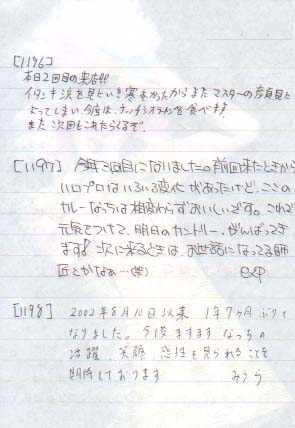 [1196]
本日2回目の来店!!
イタンキ浜を見ていき寒かったからまたマスターの顔見に
よってしまい、今度は、ナッチシオラーメンを食べます。
また次回もこれたらくるぞ。
[1197] 今年3回目になりました。前回来たときから
ハロプロはいろいろ変化があったけど、ここの
カレーなっちは相変わらずおいしいです。これで
元気つけて、明日のカントリー、がんばってき
ます! 次に来るときは、お世話になってる師
匠とかなぁ…(笑)
[1198] 2002年8月10日以来 1年7ヶ月ぶりと
なりました。今後ますます なっちの
活躍、笑顔、感性を見られることを
期待しております みうら